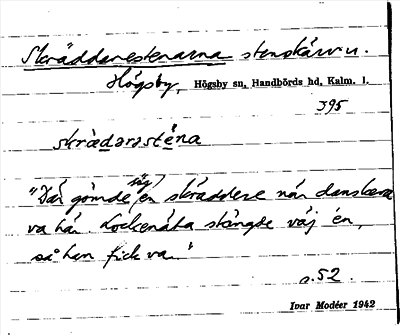 Skräddarestenarna stenskärv u.
Högsby, Högsby sn, Handbörds hd, Kalm. l.
395
skrädarəsténa
"Där gömde sig en skräddere när danskara
va här. Lockenäta stängde väj én,
så han fick va."
s. 52.
Ivar Modéer 1942